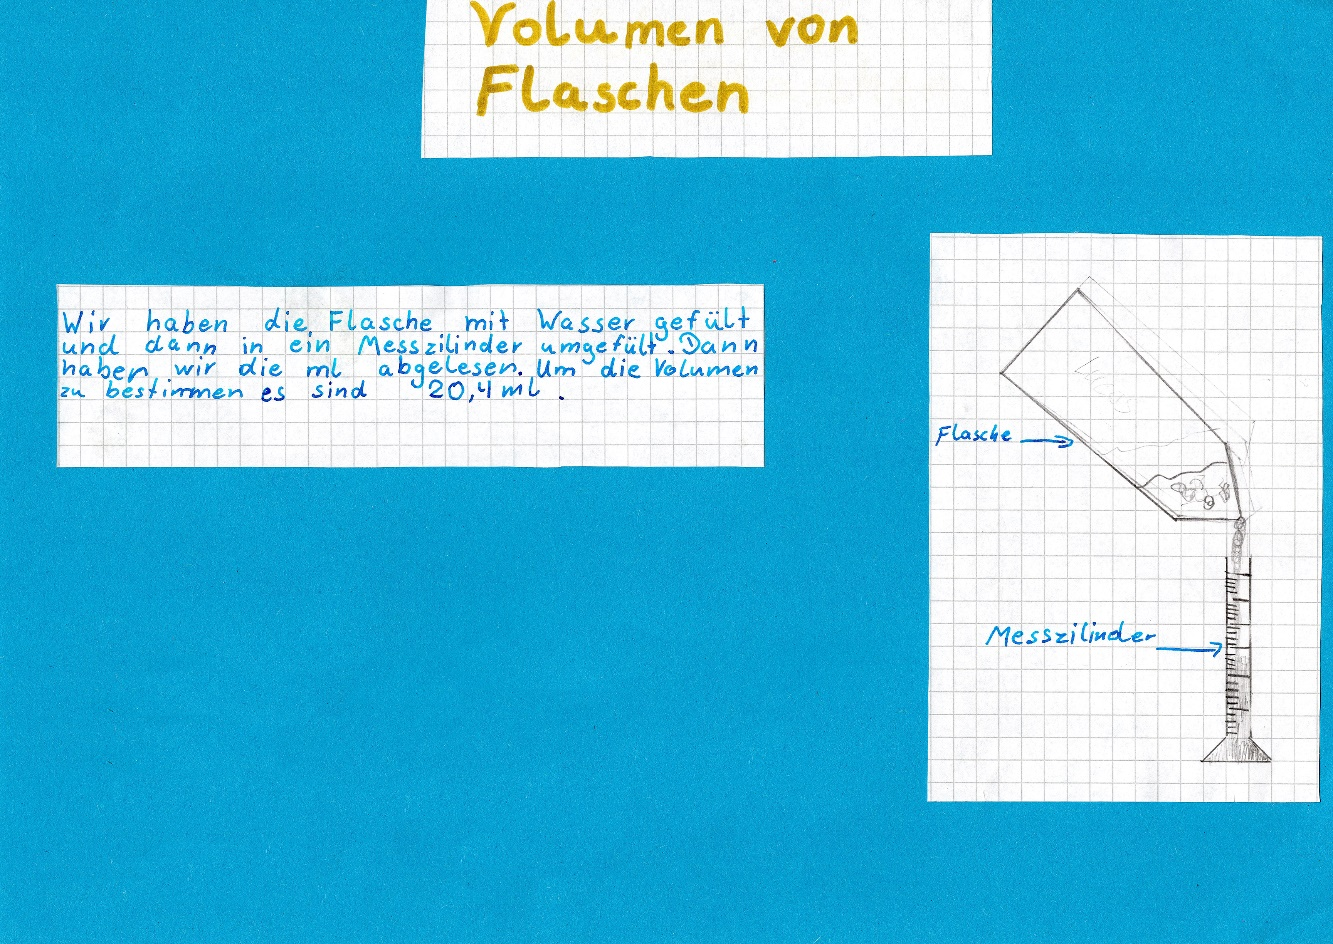 Volumen von
Flaschen
Wir haben die Flasche mit Wasser gefült
und dann in ein Messzilinder umgefült. Dann
haben wir die ml abgelesen. Um die Volumen
zu bestimmen es sind 20,4 ml.
Flasche
Messzilinder